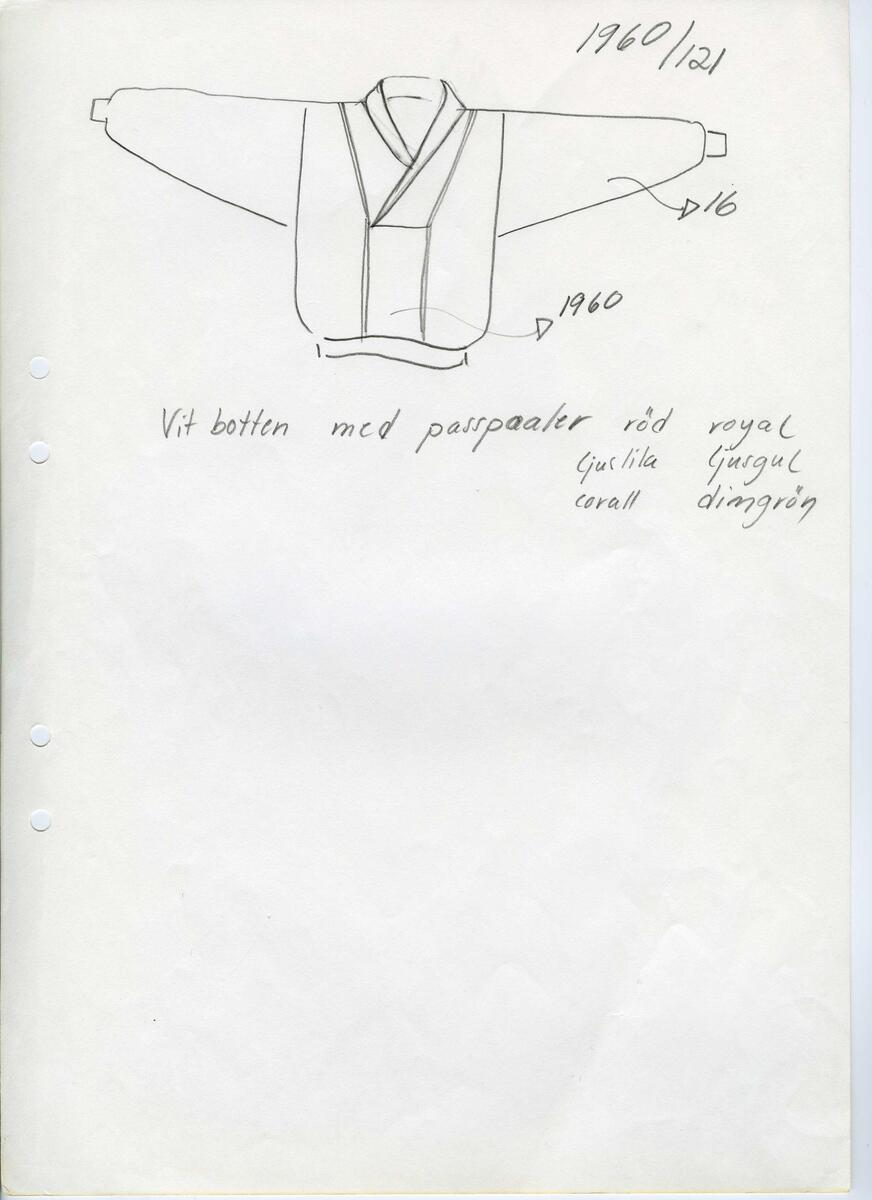 1960/121
16
1960
Vit botten med passpoaler röd royal
ljuslila ljusgul
corall dimgrön